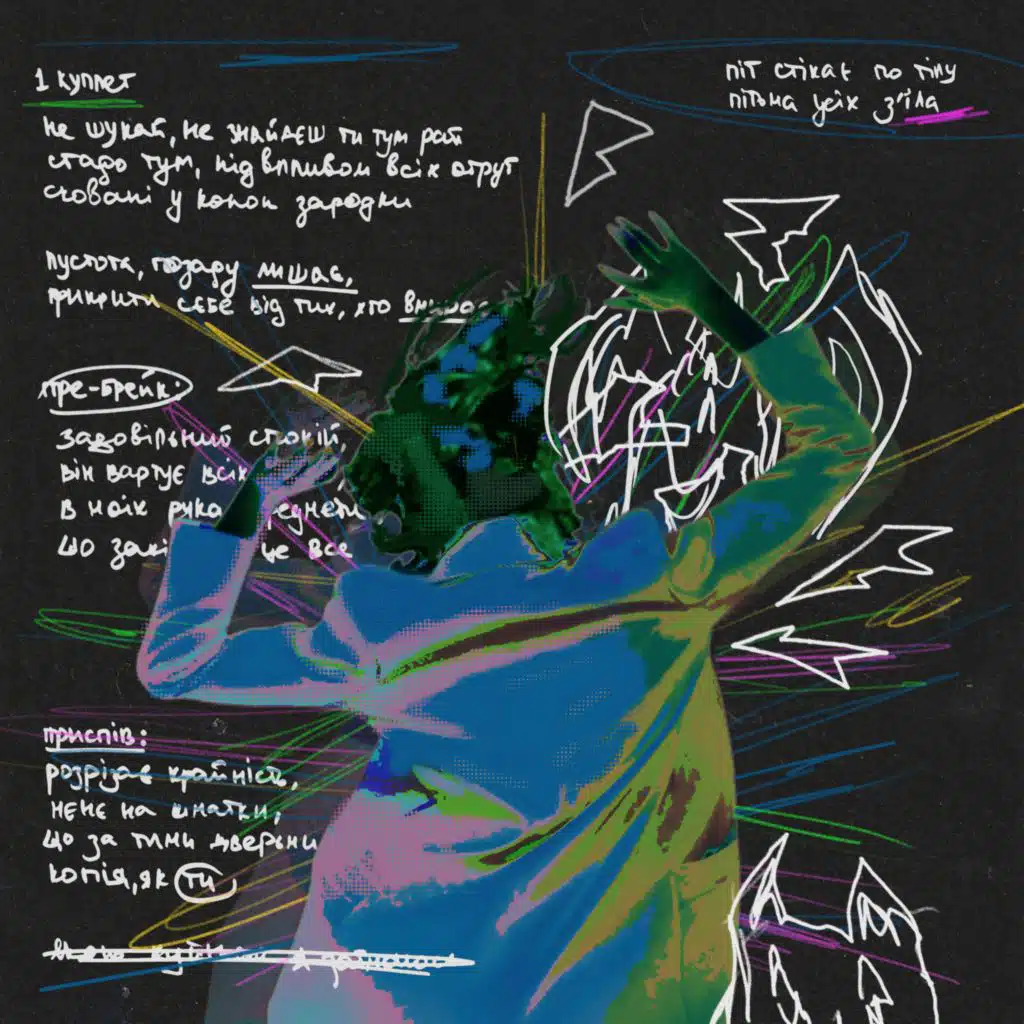 1 куплет
не шукай, не знайдеш ти тут рай
стадо тут, під впливом всіх отрут
сховані у кокон зародки
пустота, позаду лишає,
прикрити себе від тих, хто
пре-брейк:
задовільний спокій,
він вартує всіх
в моїх рука
що за це все
приспів:
розрізає крайність,
мене на шматки,
що за тими дверьми
копія, як ти
піт стікає по тілу
пітьма усіх з'їла